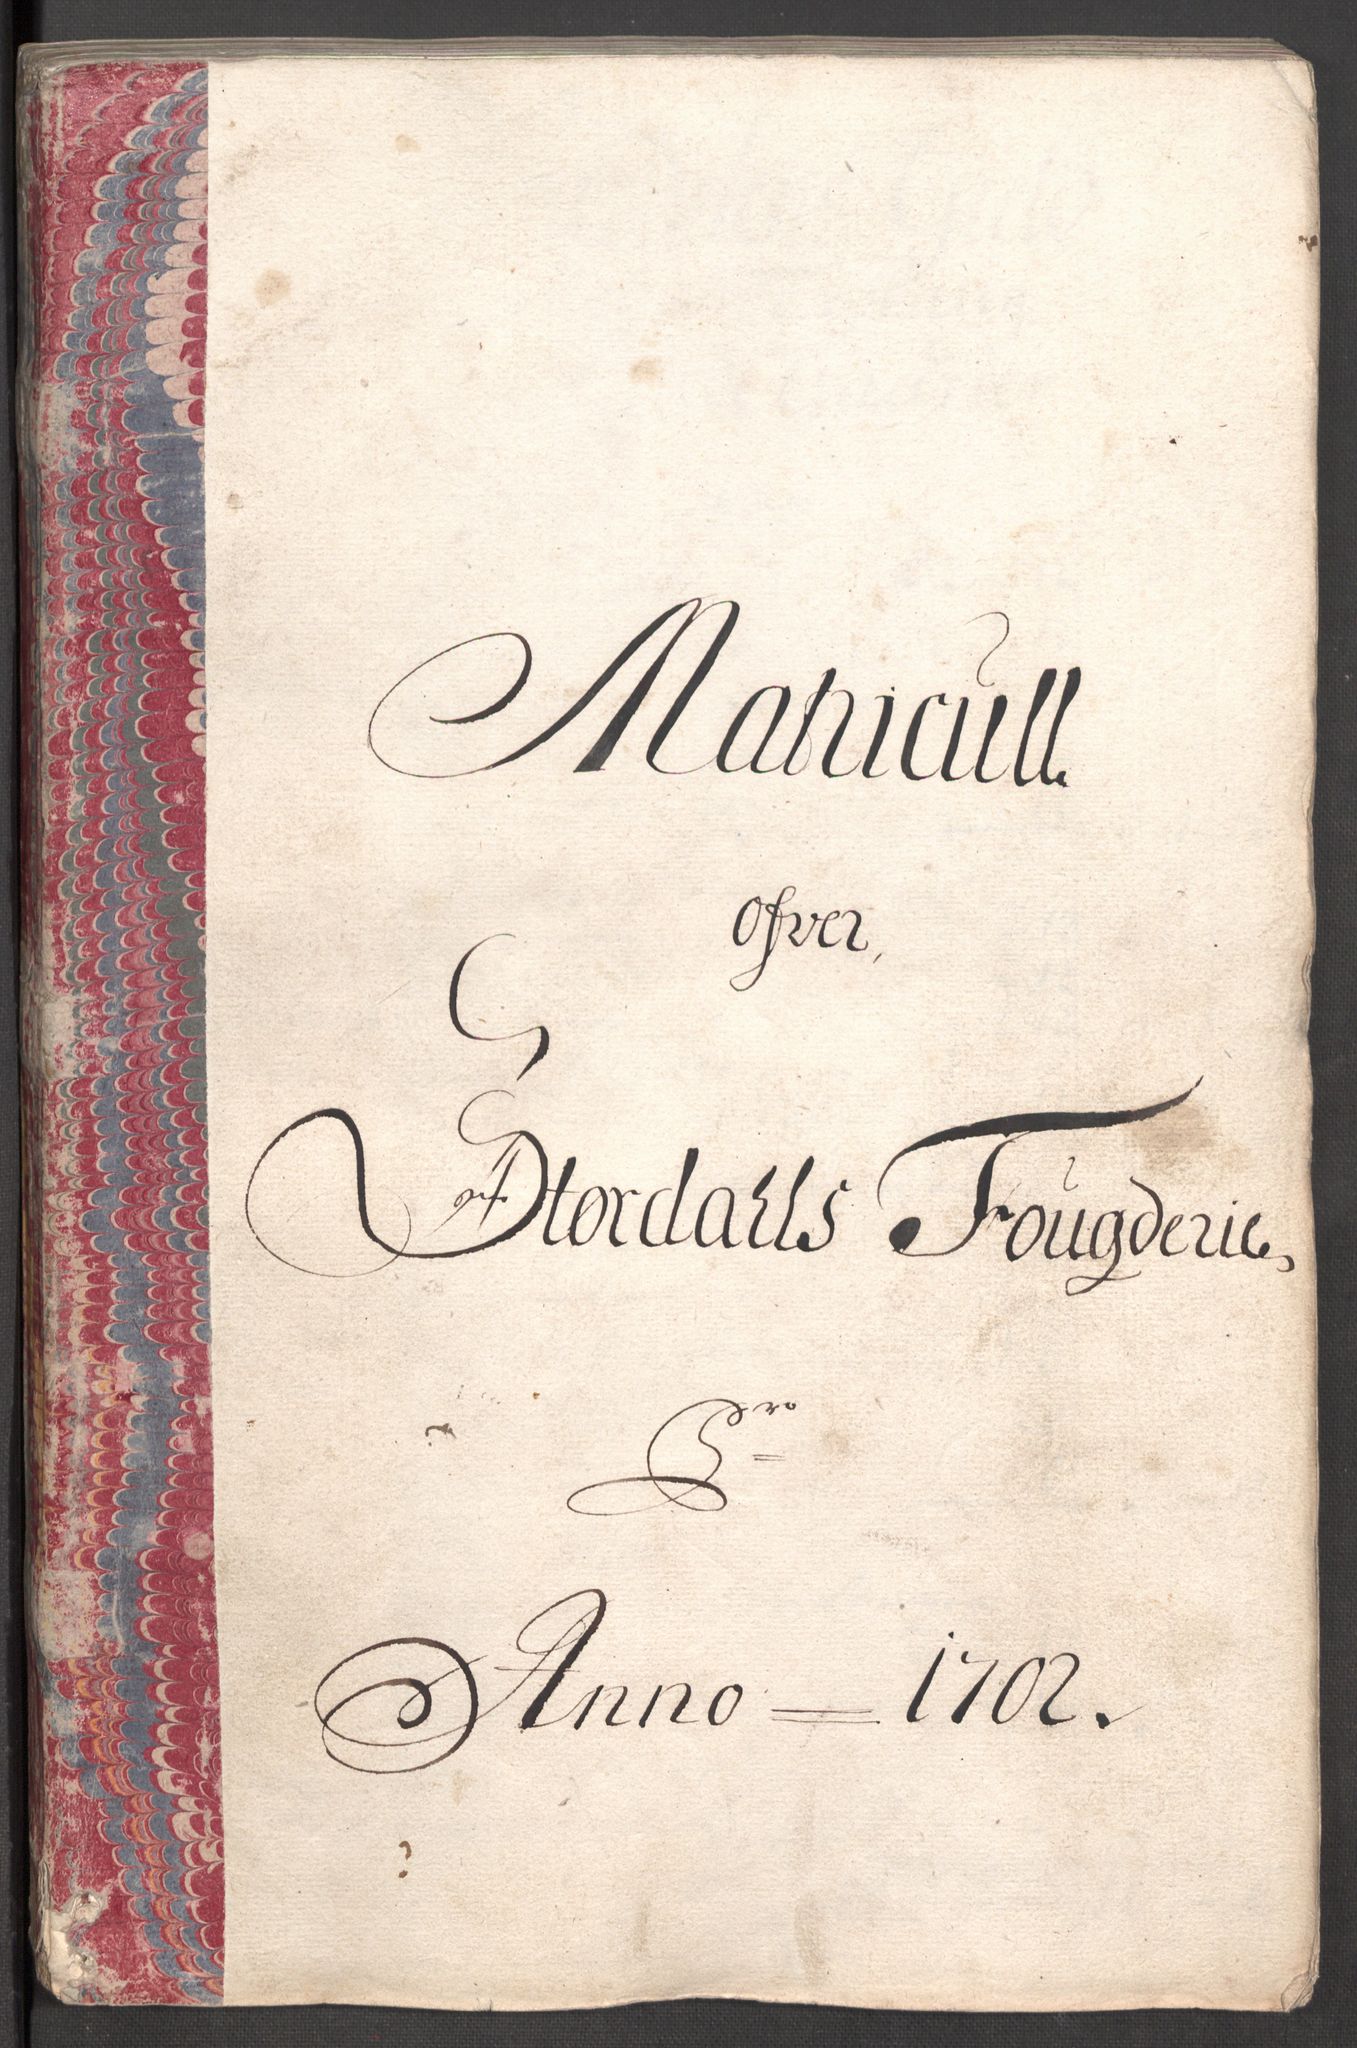 Matricull
ofver,
Stordalls Fougderie,
Pro
Anno 1702.